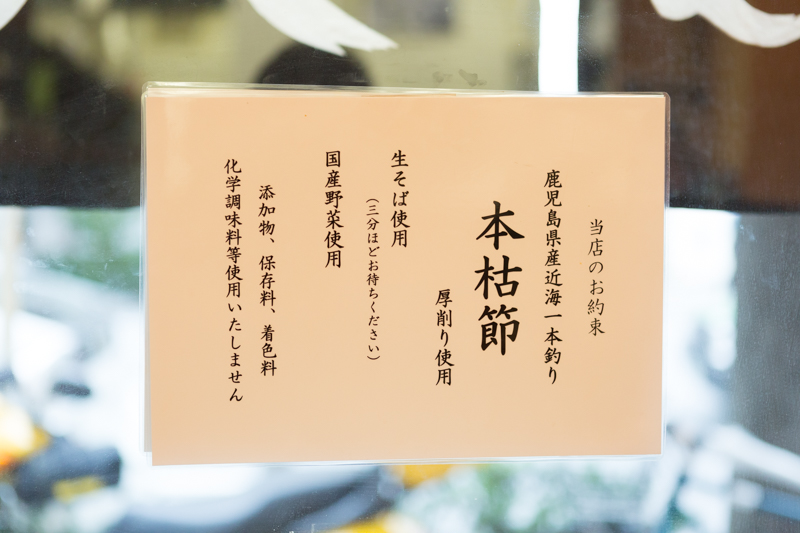 当店のお約束
鹿児島県産近海一本釣り
本枯節
厚削り使用
生そば使用
（三分ほどお待ちください）
国産野菜使用
添加物、保存料、着色料
化学調味料等使用いたしません